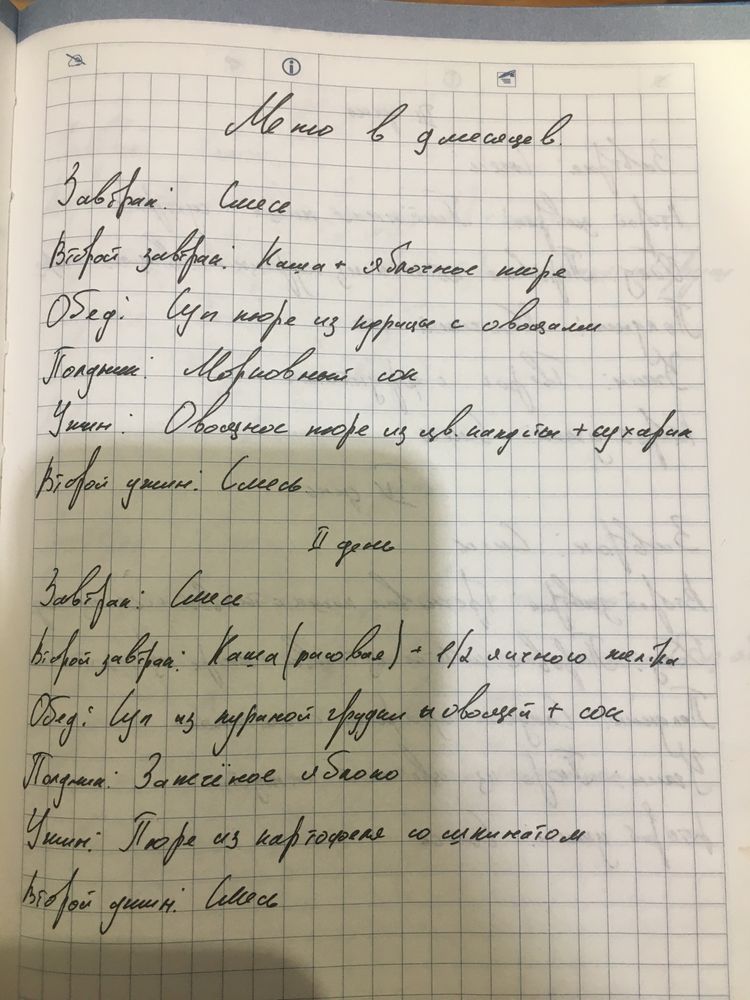 Меню в 9 месяцев.
Завтрак: Смесь
Второй завтрак: Каша + яблочное пюре
Обед: Суп пюре из курицы с овощами
Полдник: Морковный сок
Ужин: Овощное пюре из цв. капусты + сухарик
Второй ужин: Смесь
II день
Завтрак: Смесь
Второй завтрак: Каша (рисовая) + 1/2 яичного желтка
Обед: Суп из куриной грудки и овощей + сок
Полдник: Запечёное яблоко
Ужин: Пюре из картофеля со шпинатом
Второй ужин: Смесь